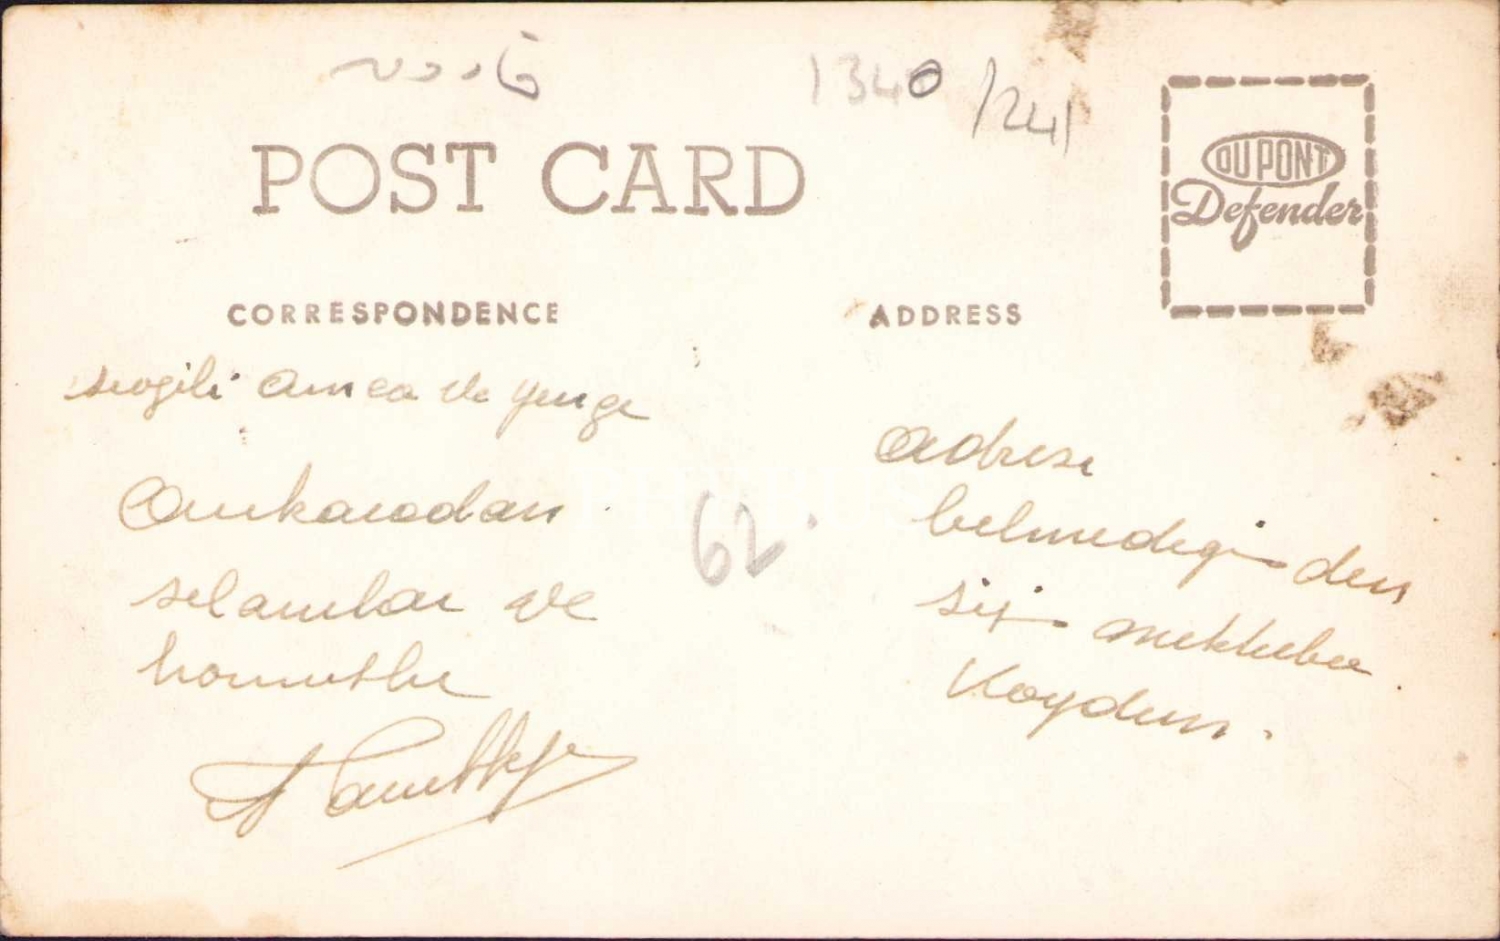 1340 /241
POST CARD
DUPONT
Defender
CORRESPONDENCE
sevgili amca ve yenge
Ankaradan
selamlar ve
hörmetler
ADDRESS
adrese
belmedeginden
sizi mektubu
Koydum.
62